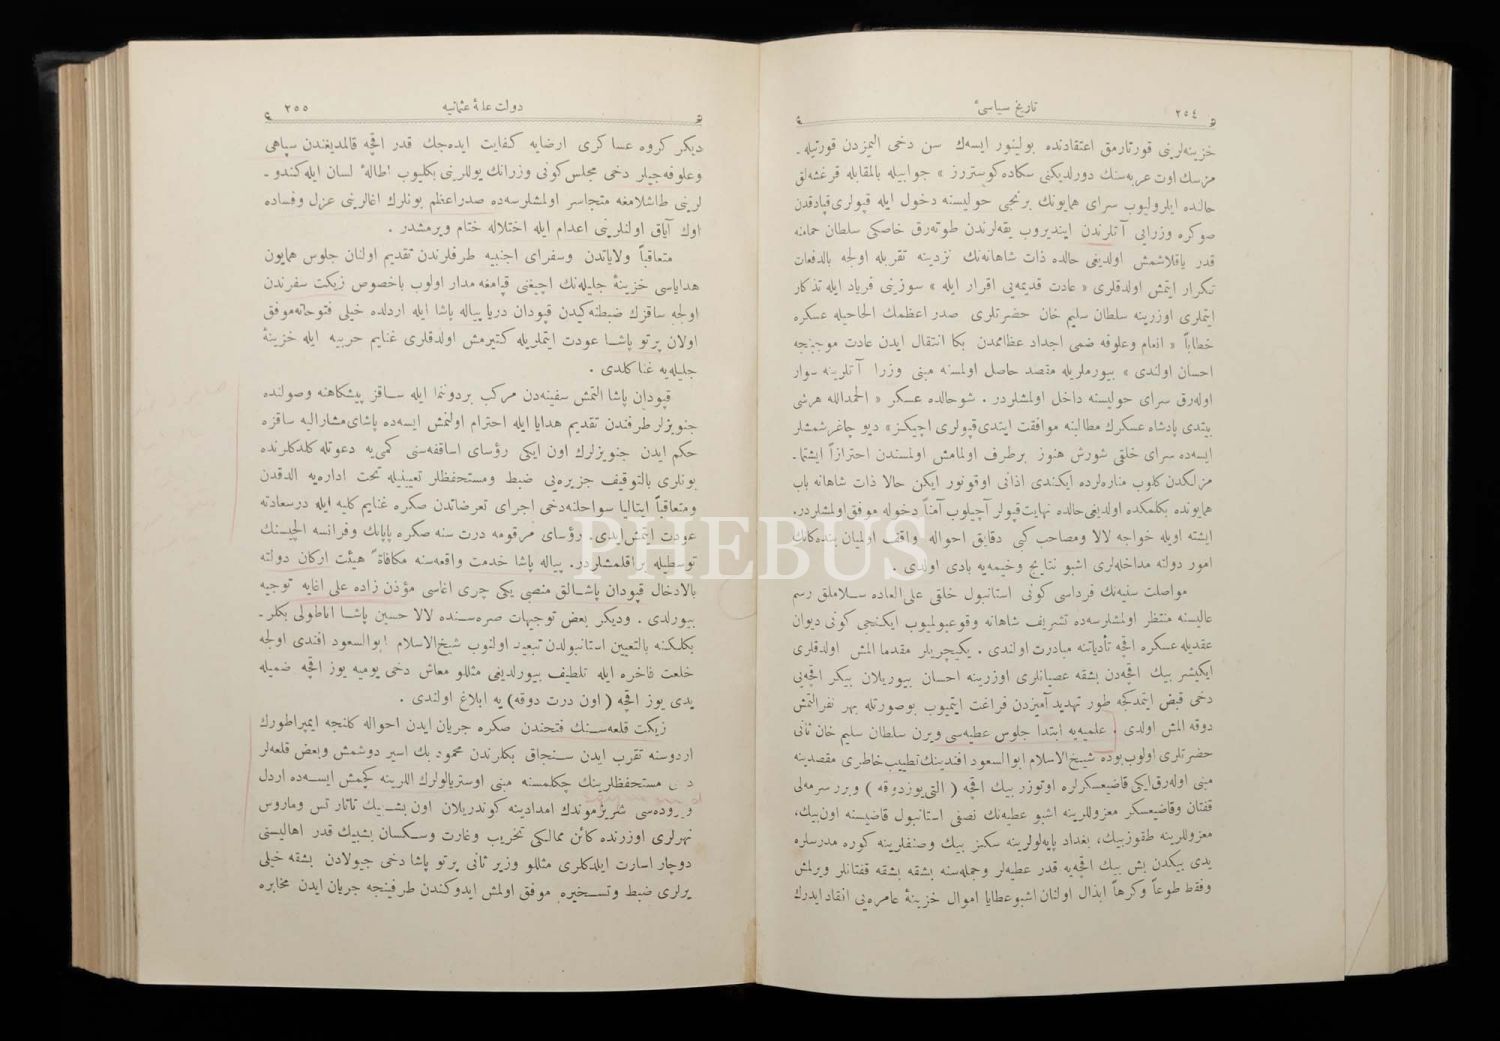 ٢٥٤
تاریخ سیاسیٔ
خزینه‌لرینی قورتارمق اعتقادنده بولینور ایسه‌ك سن دخی الیمزدن قورتیله‌ـ
مزسك اوت عربه‌سنك دورلدیكنی سكاده‌ كوسترز » جوابیله بالمقابله قرغه‌لق
حالده ایلرولیوب سرای همایونك برنجی حولیسنه دخول ایله قپولری قپادقدن
صوكره وزرایی آتلرندن ایندیروب یقه‌لرندن طوته‌رق خاصكی سلطان حمامنه
قدر یاقلاشمش اولدیغی حالده ذات شاهانه‌نك نزدینه تقربله اولجه بالدفعات
تكرار ایتمش اولدقلری « عادت قدیمه‌یی اقرار ایله » سوزینی فریاد ایله تذكار
ایتملری اوزرینه سلطان سلیم خان حضرتلری صدر اعظمك الحاحیله عسكره
خطاباً « انعام وعلوفه ضمی اجداد عظاممدن بكا انتقال ایدن عادت موجبنجه
احسان اولندی » بیورملریله مقصد حاصل اولمسنه مبنی وزرا آتلرینه سوار
اوله‌رق سرای حولیسنه داخل اولمشلردر . شوحالده عسكر « الحمدالله هرشی
بیتدی پادشاه عسكرك مطالبنه موافقت ایتدی قپولری آچیكز » دیو چاغرشمشلر
ایسه‌ده سرای خلقی شورش هنوز برطرف اولمامش اولمسندن احترازاً ایشتماـ
مزلكدن كلوب مناره‌لرده ایكندی اذانی اوقونور ایكن حالا ذات شاهانه باب
همایونده بكلمكده اولدیغی حالده نهایت قپولر آچیلوب آمناً دخوله موفق اولمشلردر.
ایشته اویله خواجه لالا ومصاحب كبی دقایق احواله واقف اولمیان بنده‌كانك
امور دولته مداخله‌لری اشبو نتایج وخیمه‌یه بادی اولدی .
مواصلت سنیه‌نك فرداسی كونی استانبول خلقی علی‌العاده سلاملق رسم
عالیسنه منتظر اولمشلرسه‌ده تشریف شاهانه وقوعبولمیوب ایكنجی كونی دیوان
عقدیله عسكره اقچه تأدیاتنه مبادرت اولندی . یكیچریلر مقدما المش اولدقلری
ایكیشر بیك اقچه‌دن بشقه عصیانلری اوزرینه احسان بیوریلان بیكر اقچه‌یی
دخی قبض ایتمدكجه طور تهدید آمیزدن فراغت ایتمیوب بوصورتله بهر نفر التمش
دوقه المش اولدی . علمیه‌یه ابتدا جلوس عطیه‌سی ویرن سلطان سلیم خان ثانی
حضرتلری اولوب بوده شیخ‌الاسلام ابوالسعود افندینك تطییب خاطری مقصدینه
مبنی اوله‌رق ایكی قاضیعسكرلره اوتوزر بیك اقچه ( التی یوز دوقه ) وبرر سرمه‌لی
قفتان وقاضیعسكر معزوللرینه اشبو عطیه‌نك نصفی استانبول قاضیسنه اون بیك،
معزوللرینه طقوز بیك، بغداد پایه‌لولرینه سكز بیك وصنفلرینه كوره مدرسلره
یدی بیكدن بش بیك اقچه‌یه قدر عطیه‌لر وجمله‌سنه بشقه بشقه قفتانلر ویرلمش
وفقط طوعاً وكرهاً ابذال اولنان اشبو عطایا اموال خزینهٔ عامره‌یی انقاد ایدرك
دولت علیهٔ عثمانیه
٢٥٥
دیكر كروه عساكری ارضایه كفایت ایده‌جك قدر اقچه قالمدیغندن سپاهی
وعلوفه‌جیلر دخی مجلس كونی وزرانك یوللرینی بكلیوب اطالهٔ لسان ایله كندوـ
لرینی طاشلامغه متجاسر اولمشلرسه‌ده صدراعظم بونلرك اغالرینی عزل وفساده
اوك آیاق اولنلرینی اعدام ایله اختلاله ختام ویرمشدر .
متعاقباً ولایاتدن وسفرای اجنبیه طرفلرندن تقدیم اولنان جلوس همایون
هدایاسی خزینهٔ جلیله‌نك آچیغنی قپامغه مدار اولوب باخصوص زیكت سفرندن
اولجه ساقزك ضبطنه كیدن قپودان دریا پیاله پاشا ایله اردلده خیلی فتوحاته موفق
اولان پرتو پاشا عودت ایتملریله كتیرمش اولدقلری غنایم حربیه ایله خزینهٔ
جلیله‌یه غنا كلدی .
قپودان پاشا التمش سفینه‌دن مركب بردوننما ایله ساقز پیشكاهنه وصولنده
جنویزلر طرفندن تقدیم هدایا ایله احترام اولنمش ایسه‌ده پاشای مشارالیه ساقزه
حكم ایدن جنویزلرك اون ایكی رؤسای اساقفه‌سنی كمی‌یه دعوتله كلدكلرنده
بونلری بالتوقیف جزیره‌یی ضبط ومستحفظلر تعیینیله تحت اداره‌یه الدقدن
ومتعاقباً ایتالیا سواحلنه‌دخی اجرای تعرضاتدن صكره غنایم كلیه ایله درسعادته
عودت ایتمش ایدی. رؤسای مرقومه درت سنه صكره پاپانك وفرانسه ایلچیسنك
توسطیله براقلمشلردر. پیاله پاشا خدمت واقعه‌سنه مكافاةً هیئت اركان دولته
بالادخال قپودان پاشالق منصبی یكی چری اغاسی مؤذن زاده علی اغایه توجیه
بیورلدی . ودیكر بعض توجیهات صره‌سنده لالا حسین پاشا اناطولی بكلرـ
بكلكنه بالتعیین استانبولدن تبعید اولنوب شیخ‌الاسلام ابوالسعود افندی اولجه
خلعت فاخره ایله تلطیف بیورلدیغی مثللو معاش دخی یومیه یوز اقچه ضمیله
یدی یوز اقچه ( اون درت دوقه ) یه ابلاغ اولندی .
زیكت قلعه‌سنك فتحندن صكره جریان ایدن احواله كلنجه ایمپراطورك
اردوسنه تقرب ایدن سنجاق بكلرندن محمود بك اسیر دوشمش وبعض قلعه‌لر
مستحفظلرینك چكلمسنه مبنی اوستریالولرك اللرینه كچمش ایسه‌ده اردل
ویوده‌سی شریژموندك امدادینه كوندریلان اون بشبیك تاتار تس وماروس
نهرلری اوزرنده كائن ممالیكی تخریب وغارت وسكسان بشبیك قدر اهالیسنی
دوچار اسارت ایلدكلری مثللو وزیر ثانی پرتو پاشا دخی جیولادن بشقه خیلی
یرلری ضبط وتسخیره موفق اولمش ایدوكندن طرفینجه جریان ایدن مخابره
PHEBUS